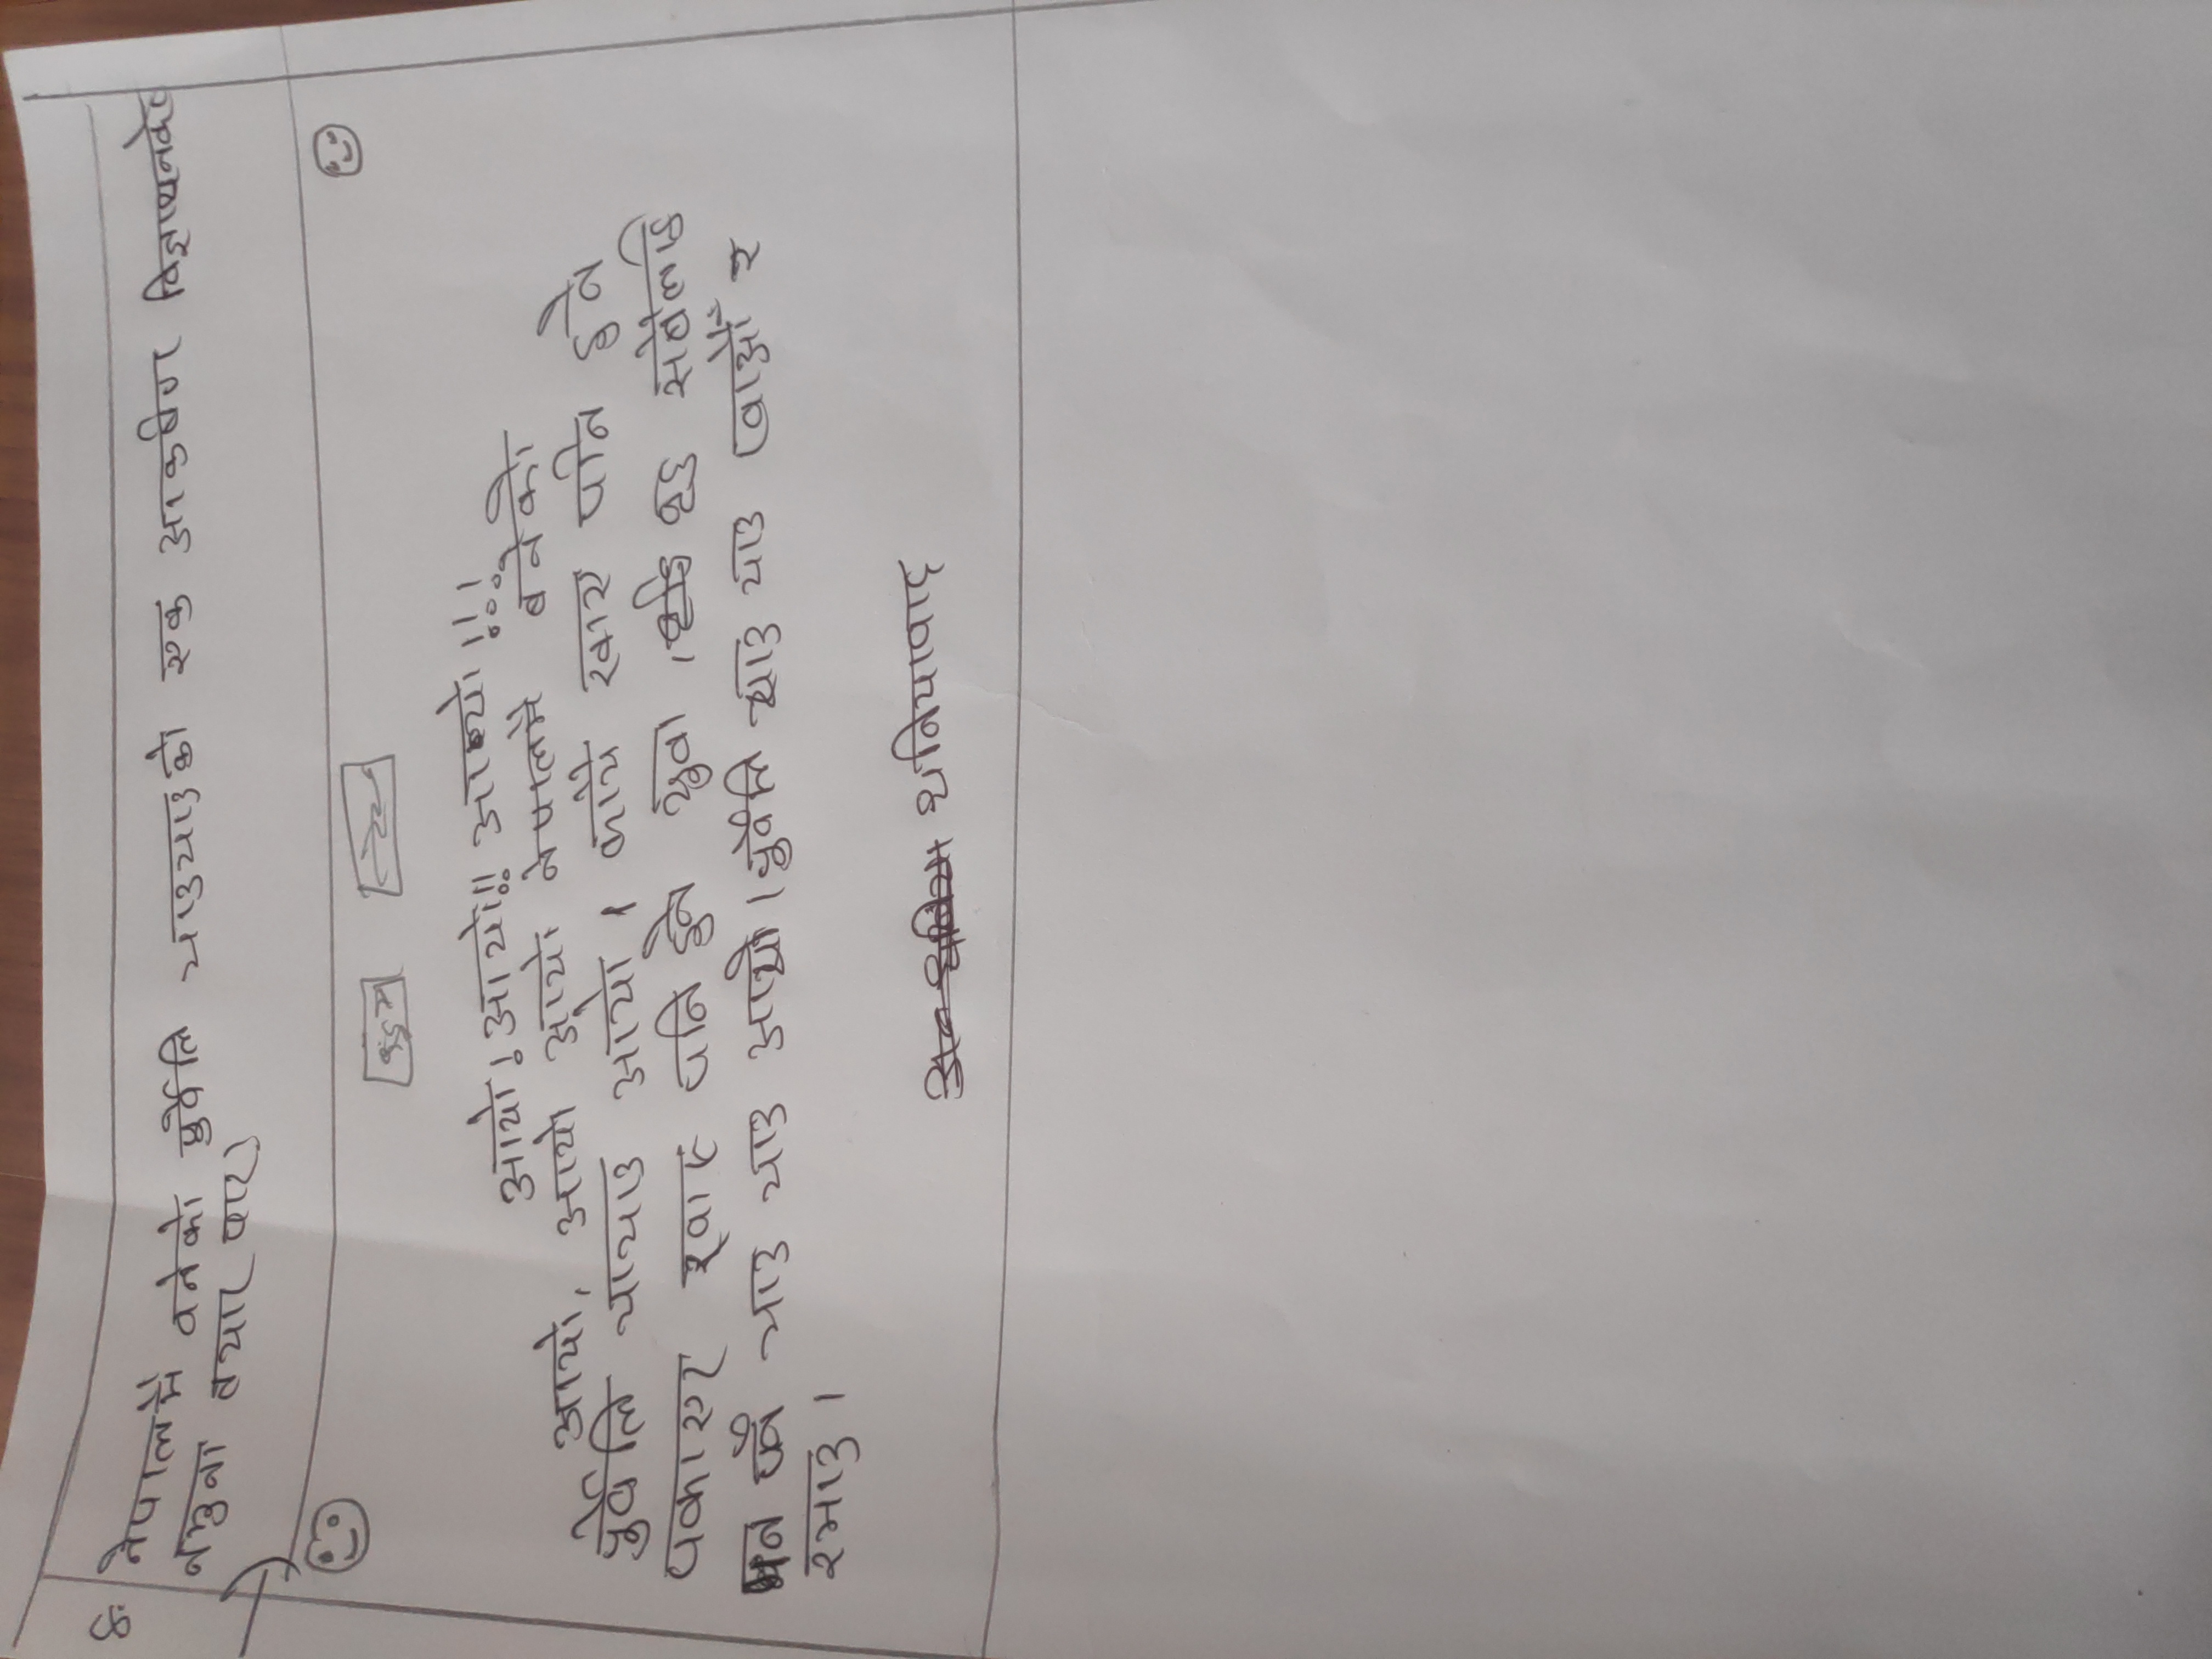 ४. नेपालमै वनेको पुर्वेलि चाउचाउको एक आकर्षण विज्ञापनको
नमुना तयार पार।
आयो! आयो!! आयो!!!
आयो, आयो आयो नेपालमै बनेको
पुर्वेलि चाचाउ आयो । काचै खाए पनि हुने
पकाएर खाए पनि हुने युवा , बृद्ध सबैलाई
मन पर्ने चाउ चाउ आयो । पुर्वेलि चाउ चाउ खाऔँ र
रमाउ ।
धनियावाद